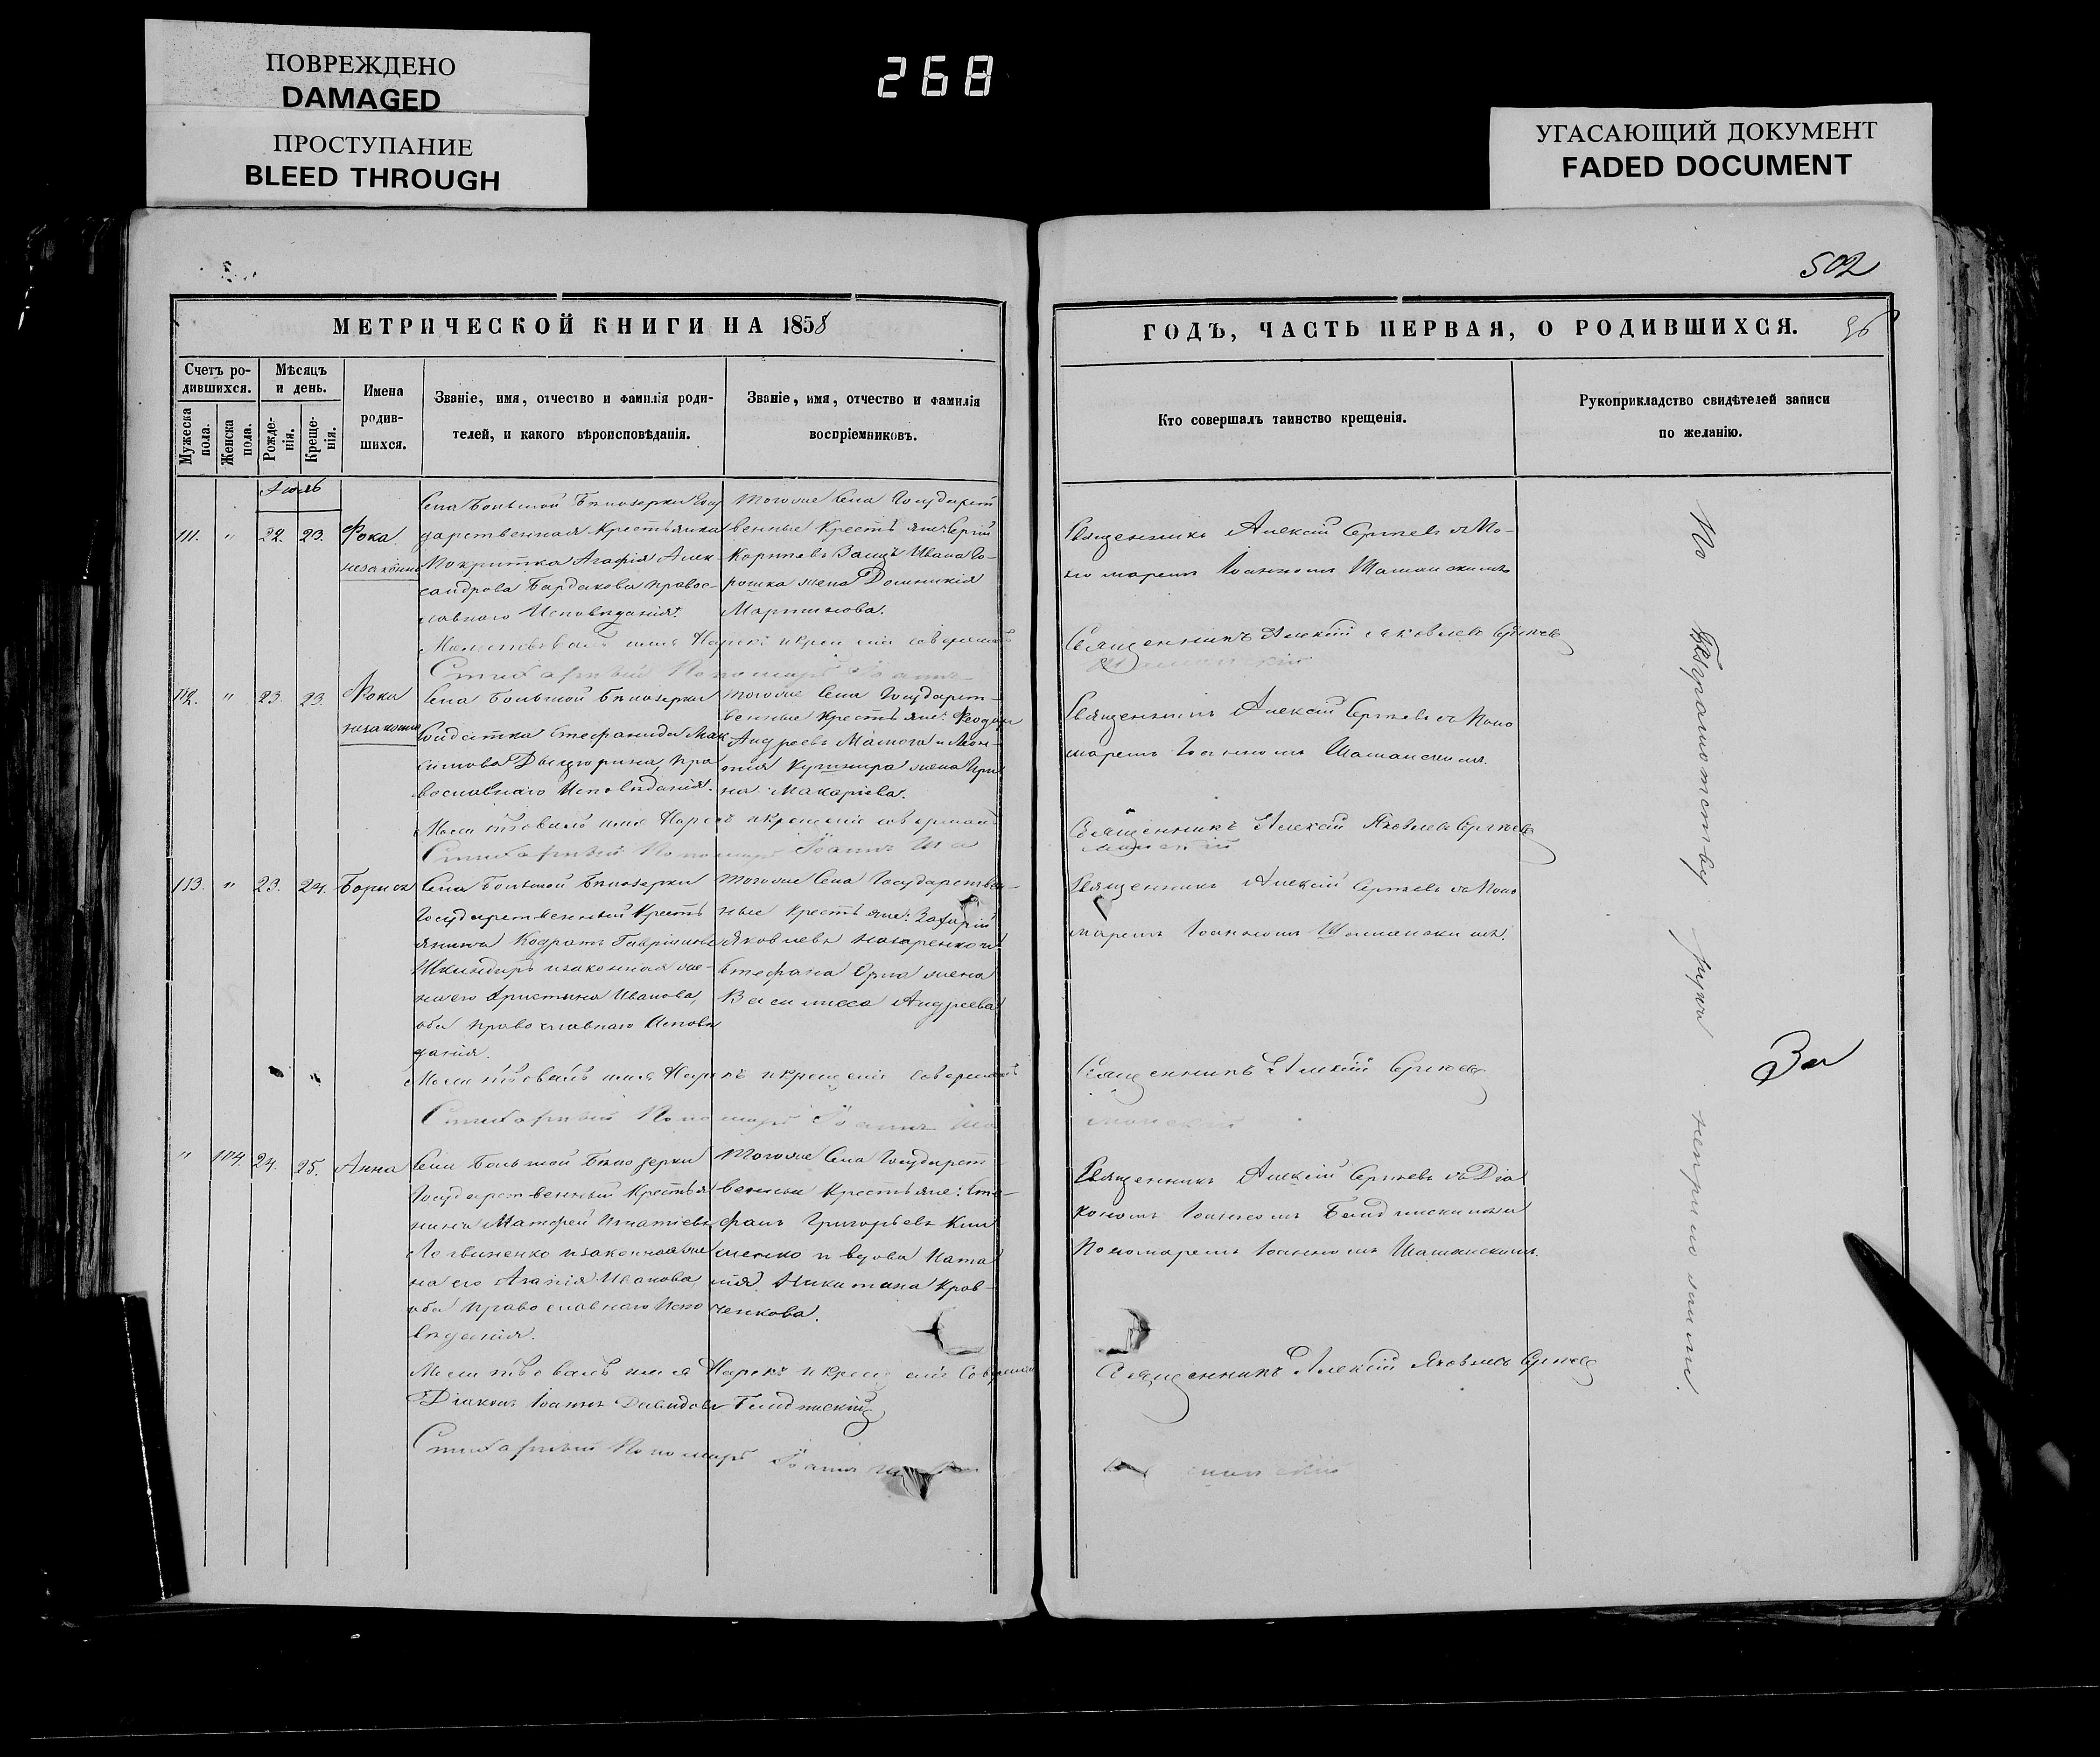 ПОВРЕЖДЕНО
DAMAGED
ПРОСТУПАНИЕ
BLEED THROUGH
268
УГАСАЮЩИЙ ДОКУМЕНТ
FADED DOCUMENT
502
МЕТРИЧЕСКОЙ КНИГИ НА 1858
ГОДЪ, ЧАСТЬ ПЕРВАЯ, О РОДИВШИХСЯ.
96
Счетъ ро-
дившихся.
Мужеска
пола.
Женска
пола.
Мѣсяцъ
и день.
Рожде-
нія.
Креще-
нія.
Имена
родив-
шихся.
Званіе, имя, отчество и фамилія роди-
телей, и какого вѣроисповѣданія.
Званіе, имя, отчество и фамилія
воспріемниковъ.
Кто совершалъ таинство крещенія.
Рукоприкладство свидѣтелей записи
по желанію.
Іюль
111. " 22. 23. Фока
незаконно
Села Большой Бѣлозерки Госу
дарственная Крестьянка
Покритка Агафія Алек-
сандрова Бардакова правос-
лавного Исповѣданія.
Тогоже Села Государст
венные Крестьяне: Сергій
жена Домникія
Мартинова.
Священникъ Алексій Сергѣевъ съ По-
номаремъ Іоанномъ Шаманскимъ
Молитвовалъ имя Нарекъ и крещеніе совершалъ
Священникъ Алексій Яковлевъ Сергѣевъ
Стихарный Пономарь Іоаннъ
112. " 23. 23. Фока
незаконно
Села Большой Бѣлозерки
Солдатка Стефанида Мак
симова православнаго Исповѣданія.
Тогоже Села Государст-
венные Крестьяне: Феодоръ
Андреевъ
жена Ири
на Макаріева.
Священникъ Алексій Сергѣевъ съ Поно
маремъ Іоанномъ Шаманскимъ.
Молитвовалъ имя Нарекъ и крещеніе совершалъ
Священникъ Алексій Яковлевъ Сергѣевъ
Стихарный Пономарь Іоаннъ Ша
манскій
113. " 23. 24. Бориса
Села Большой Бѣлозерки
Государственный Кресть
янинъ Кодратъ Гавріиловъ
Шкиндиръ и законная же-
на его Христина Иванова,
оба православнаго Исповѣ
данія.
Тогоже Села Государствен-
ные Крестьяне: Захарій
Яковлевъ Назаренко и
Стефана Орла жена
Василисса Андреева
Священникъ Алексій Сергѣевъ съ Поно
маремъ Іоанномъ Шаманскимъ.
Молитвовалъ имя Нарекъ и крещеніе совершалъ
Священникъ Алексій Сергѣевъ
Стихарный Пономарь Іоаннъ Ша
манскій
" 104. 24. 25. Анна
Села Большой Бѣлозерки
Государственный Крестья
нинъ Матфей Игнатіевъ
Логвиненко и законная же
на его Агапія Иванова
оба православнаго Испо
вѣданія.
Тогоже Села Государст
венные Крестьяне: Сте-
фанъ Григорьевъ Кли
менко и вдова Ната
лія Никитина Крав-
ченкова.
Священникъ Алексій Сергѣевъ съ Діа
кономъ Іоанномъ
Пономаремъ Іоанномъ Шаманскимъ.
Молитвовалъ имя Нарекъ и крещеніе совершалъ
Священникъ Алексій Яковлевъ Сергѣевъ
Діаконъ Іоаннъ Давидовъ
Стихарный Пономарь Іоаннъ Ша
манскій
По безграмотству руки неприложили.
За